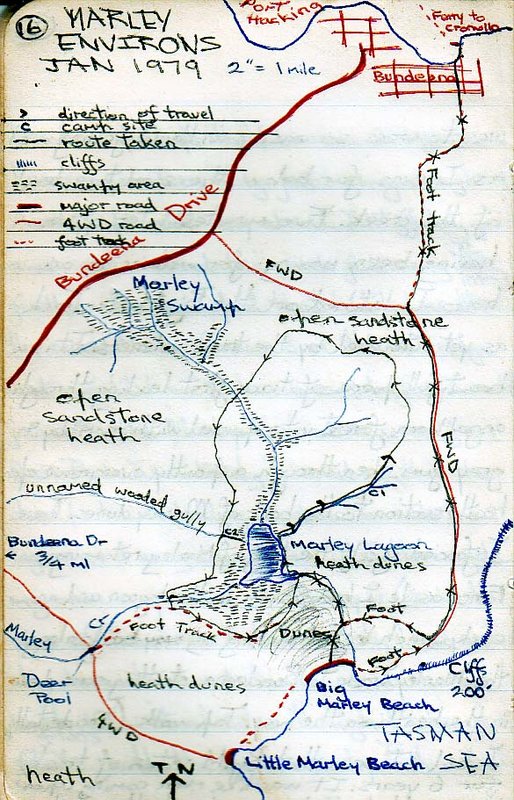 16
MARLEY
ENVIRONS
JAN 1979
2" = 1 mile
Port
Hacking
Ferry to
Cronulla
Bundeena
> direction of travel
c camp site
route taken
cliffs
swampy area
major road
4WD road
foot track
Bundeena Drive
Foot track
FWD
Marley
Swamp
open sandstone
heath
open
sandstone
heath
FWD
unnamed wooded gully
Bundeena Dr
3/4 ml
Marley Lagoon
heath dunes
Marley
Cr
Foot Track
Dunes
Foot
Foot
Cliffs
200'
Deer
Pool
heath dunes
Big
Marley Beach
4WD
TASMAN
SEA
Little Marley Beach
heath
T N